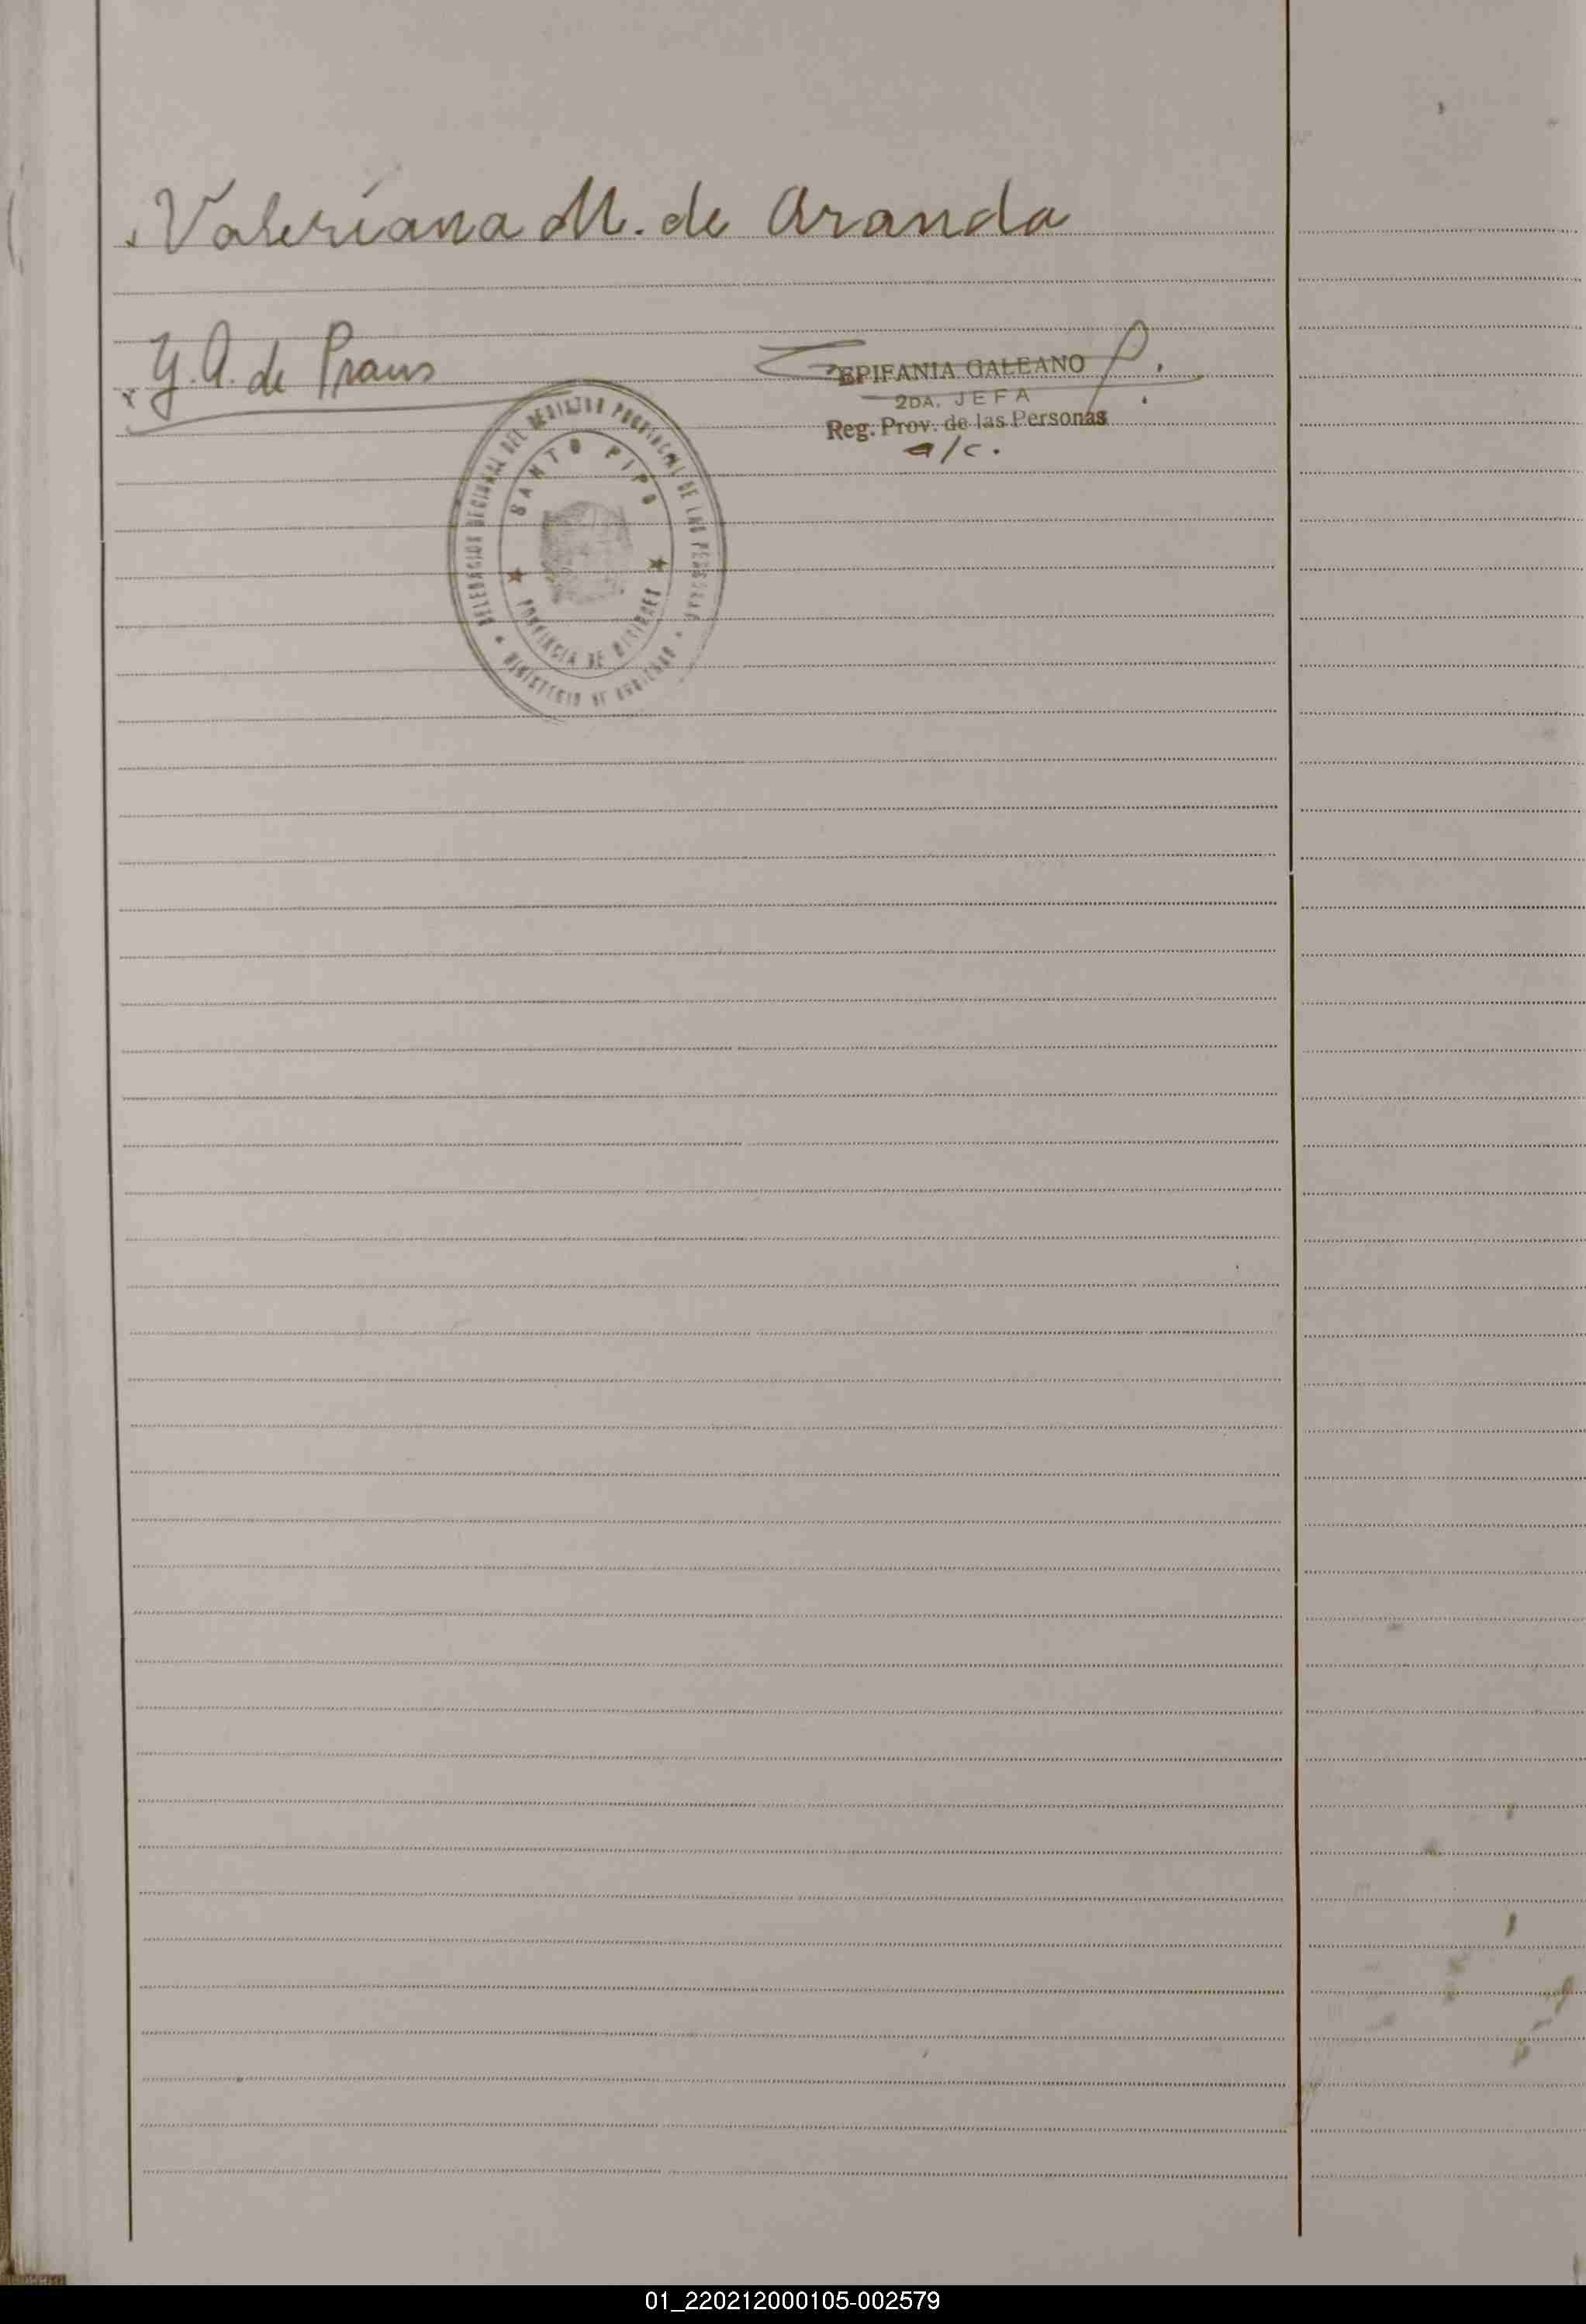 Valeriana M. de Aranda
Y. A. de Praus
EPIFANIA GALEANO
2DA. JEFA
Reg. Prov. de las Personas
a/c.
DELEGACION REGIONAL DEL REGISTRO PROVINCIAL DE LAS PERSONAS
SANTO PIPO
PROVINCIA DE MISIONES
MINISTERIO DE GOBIERNO
01_220212000105-002579